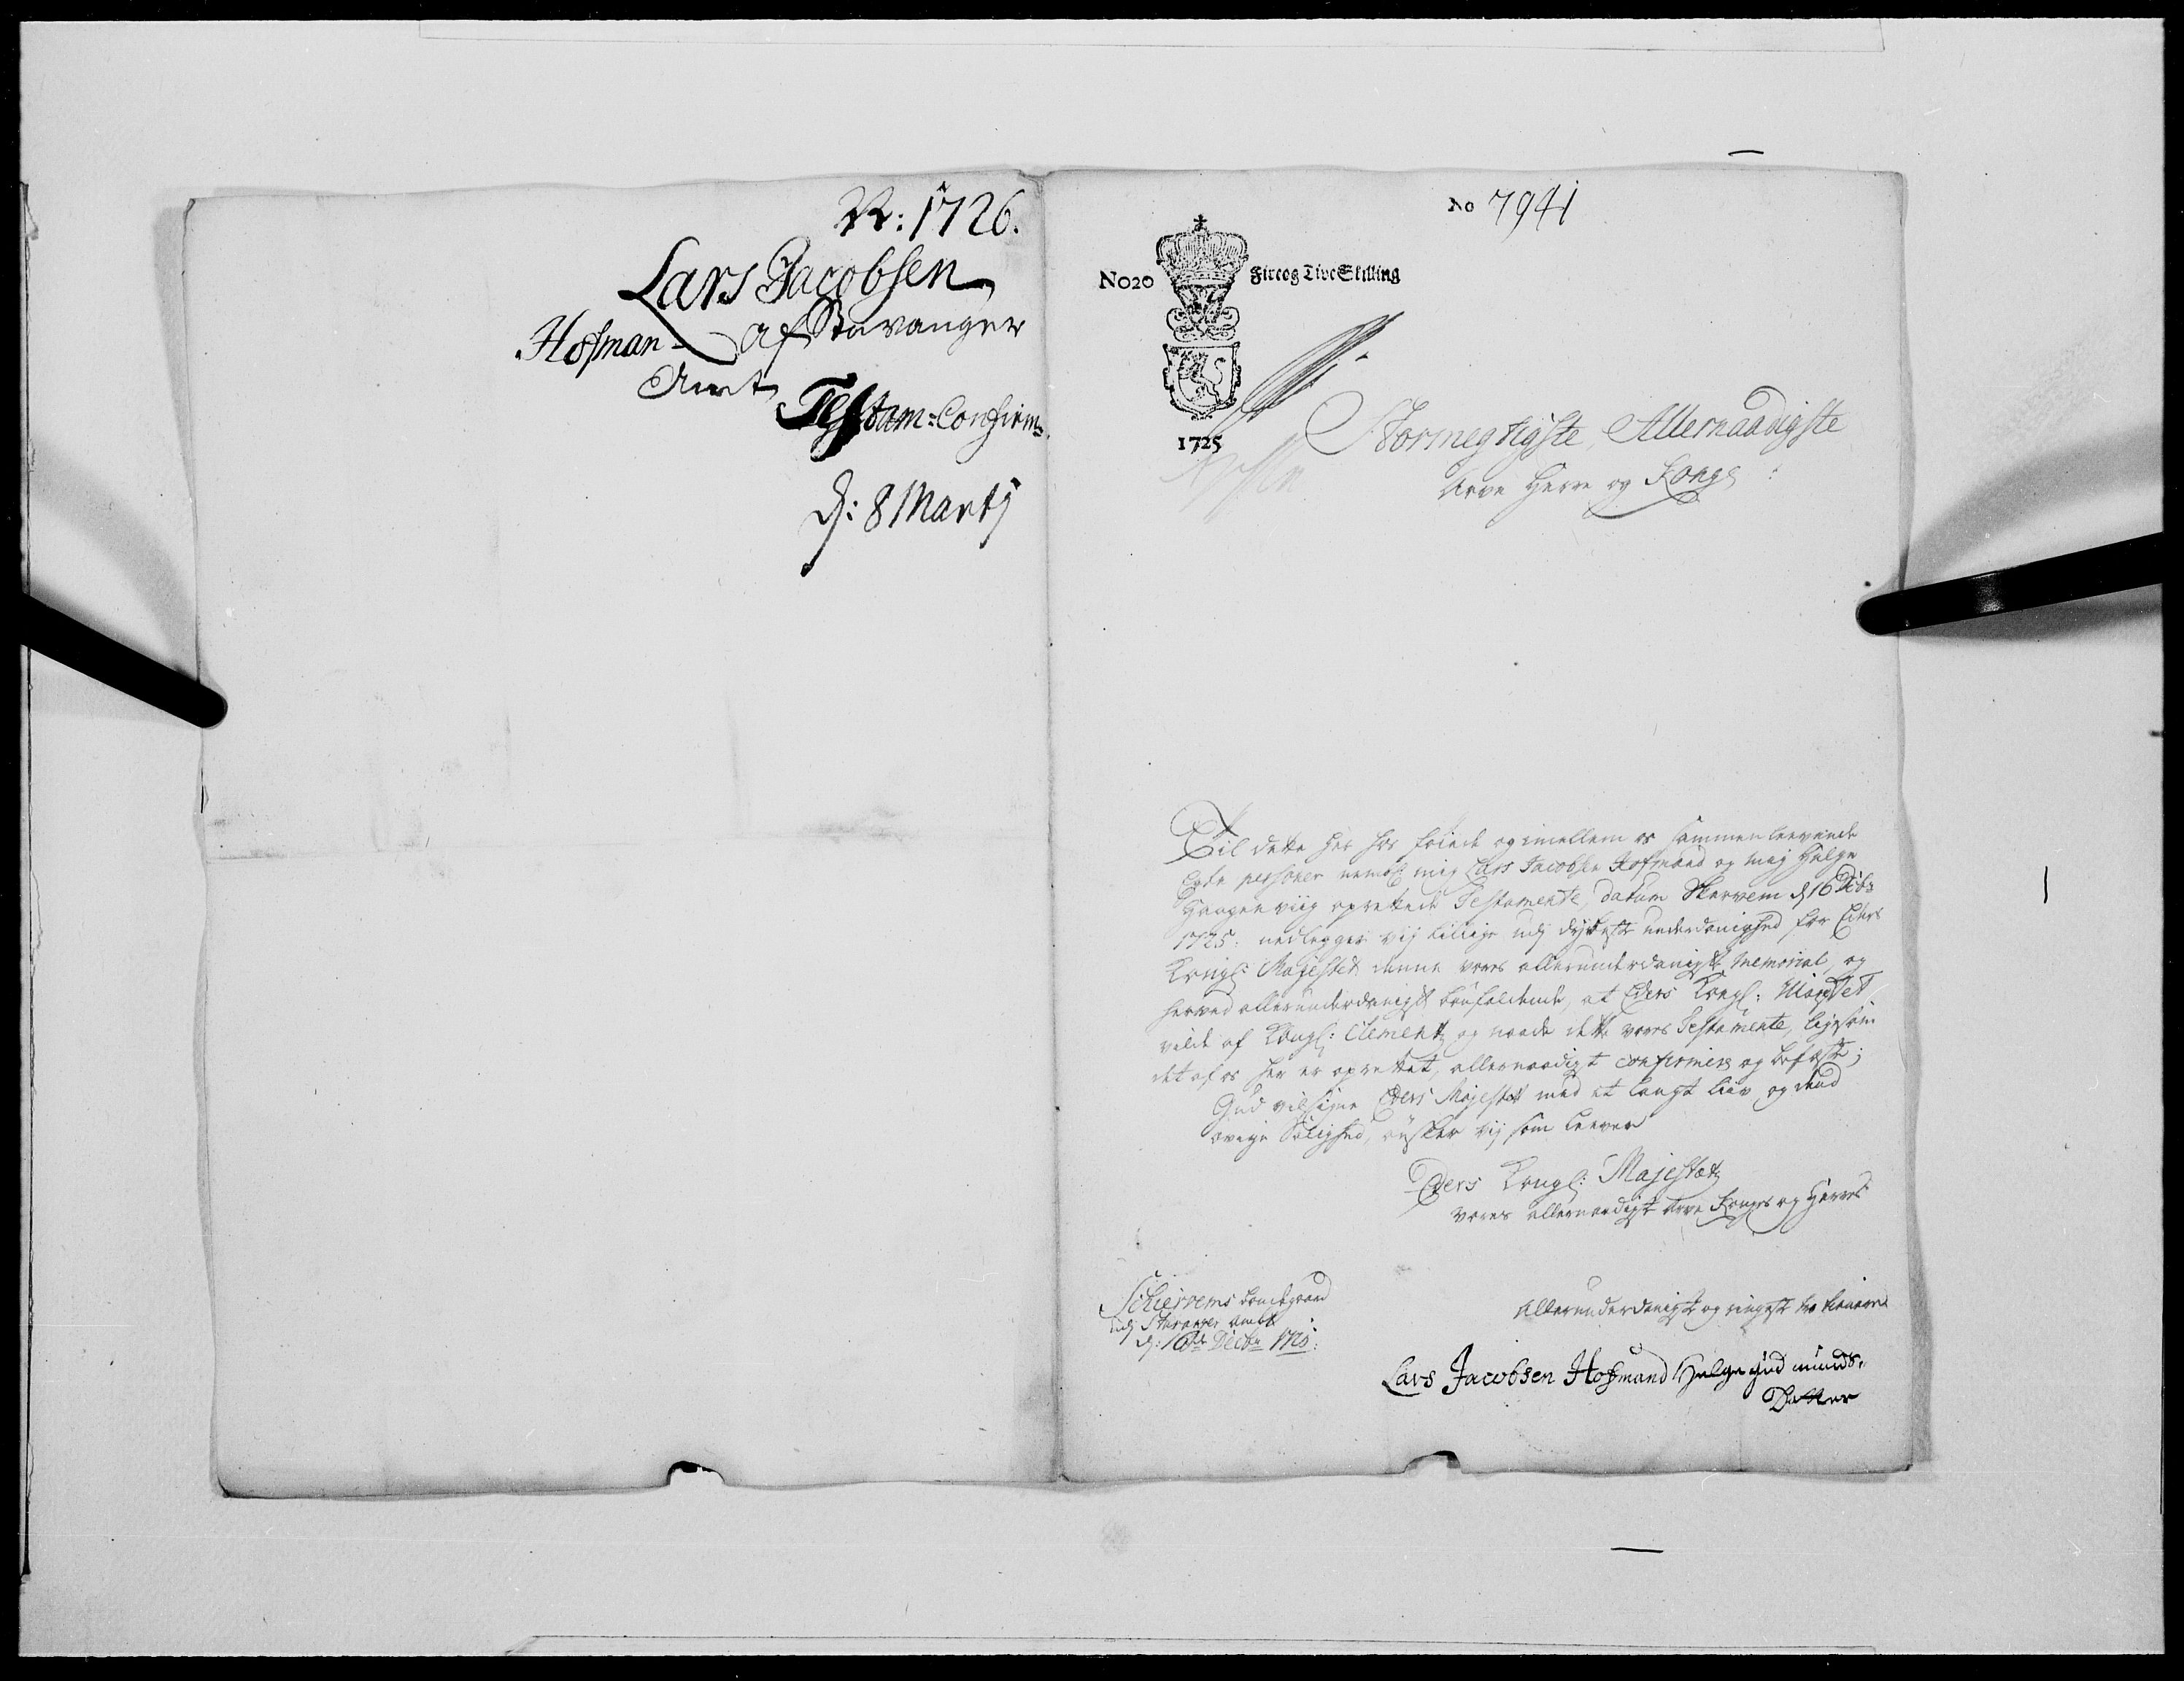 N: 1726.
Lars Jacobsen
Hofman af Stavanger
Amt
Testam: Confirm:
d: 8 Martj
No 7941
No 20 Fire og Tive Skilling
1725
Stormegtigste, Allernaadigste
Arve Herre og Konge
Til dette her hos föiede og imellem os sammenleevende
Egte personer neml: mig Lars Jacobsen Hofmand og mig Helge
oprettede Testamente, datum Skervem d 16 Dcb:
1725: nedlegger vij udj dybeste underdanighed for Eders
Kongl: Majestet denne vores allerunderdanigste Memorial, og
herved allerunderdanigst bönfaldende, at Eders Kongl: Majestet
vilde af Kongl: Clement og naade dette vores Testamente, ligesom
det af os her er oprettet, allernaadigst confirmere og befæste;
Gud velsigne Eders Majestet med et langt liiv og dend
evige Salighed, önsker vij som leever
Eders Kongl: Majestæt
vores allernaadigste Arve Konges og Herres
Schiervems
udj Stavanger Ambt
d: 16de Decbr 1725:
Allerunderdanigste og ringeste
Lars Jacobsen Hofmand Helge Gudmunds
Datter